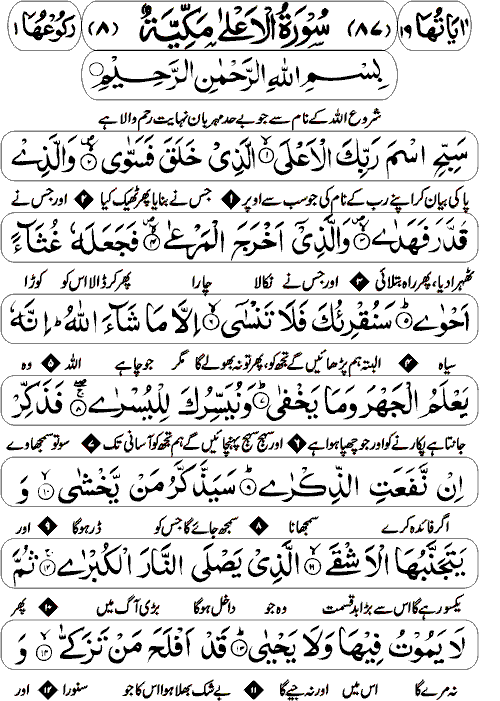 اٰیَاتُهَا ۱۹ (۸۷) سُوْرَةُ الْاَعْلٰی مَكِّیَّةٌ (۸) رُكُوْعُهَا ۱
بِسْمِ اللّٰهِ الرَّحْمٰنِ الرَّحِیْمِ
شروع اللہ کے نام سے جو بے حد مہربان نہایت رحم والا ہے
سَبِّحِ اسْمَ رَبِّكَ الْاَعْلَی ۱ الَّذِیْ خَلَقَ فَسَوّٰی ۲ وَالَّذِیْ
پاکی بیان کر اپنے رب کے نام کی جو سب سے اوپر ۱ جس نے بنایا پھر ٹھیک کیا ۲ اور جس نے
قَدَّرَ فَهَدٰی ۳ وَالَّذِیْۤ اَخْرَجَ الْمَرْعٰی ۴ فَجَعَلَهٗ غُثَآءً
ٹھہرا دیا، پھر راہ بتلائی ۳ اور جس نے نکالا چارا پھر کر ڈالا اس کو کوڑا
اَحْوٰی ۵ سَنُقْرِئُكَ فَلَا تَنْسٰۤی ۶ اِلَّا مَا شَآءَ اللّٰهُ اِنَّهٗ
سیاہ ۴ البتہ ہم پڑھائیں گے تجھ کو، پھر تو نہ بھولے گا مگر جو چاہے اللہ ۵ وہ
یَعْلَمُ الْجَهْرَ وَمَا یَخْفٰی ۷ وَنُیَسِّرُكَ لِلْیُسْرٰی ۸ فَذَكِّرْ
جانتا ہے پکارنے کو اور جو چھپا ہوا ہے ۶ اور سہج سہج پہنچائیں گے ہم تجھ کو آسانی تک ۷ سو تو سمجھا دے
اِنْ نَّفَعَتِ الذِّكْرٰی ۹ سَیَذَّكَّرُ مَنْ یَّخْشٰی ۱۰ وَ
اگر فائدہ کرے سمجھانا ۸ سمجھ جائے گا جس کو ڈر ہوگا ۹ اور
یَتَجَنَّبُهَا الْاَشْقَی ۱۱ الَّذِیْ یَصْلَی النَّارَ الْكُبْرٰی ۱۲ ثُمَّ
یکسو رہے گا اس سے بڑا بد قسمت وہ جو داخل ہوگا بڑی آگ میں ۱۰ پھر
لَا یَمُوْتُ فِیْهَا وَلَا یَحْیٰی ۱۳ قَدْ اَفْلَحَ مَنْ تَزَكّٰی ۱۴ وَ
نہ مرے گا اس میں اور نہ جیے گا ۱۱ بے شک بھلا ہوا اس کا جو سنورا ۱۲ اور